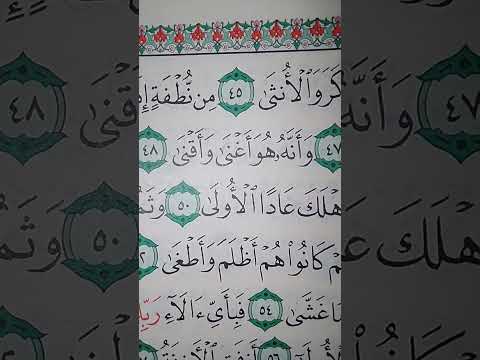 كَرَ وَٱلْأُنثَىٰ ٤٥ مِن نُّطْفَةٍ
٤٧ وَأَنَّهُۥ هُوَ أَغْنَىٰ وَأَقْنَىٰ ٤٨
هْلَكَ عَادًا ٱلْأُولَىٰ ٥٠ وَثَمُ
كَانُوا۟ هُمْ أَظْلَمَ وَأَطْغَىٰ
مَا غَشَّىٰ ٥٤ فَبِأَىِّ ءَالَآءِ رَبِّ